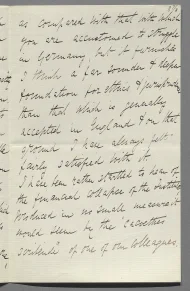 as compared with that with which
you are accustomed to struggle
in Germany, but it furnishes
I think a far sounder & deeper
foundation for ethics &
than that which is generally
accepted in England & on this
ground I have always felt
fairly satisfied with it
I have been rather startled to hear of
the financial collapse of the Institute
produced in no small measure it
would seem by the Cacoethes
scribendi of one of our colleagues.